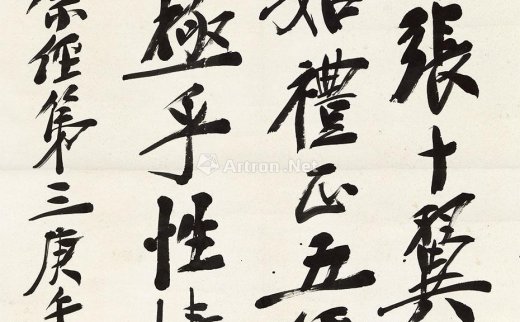 張十翼
始禮正五經
極乎性情
宗經第三庚午
Artron.Net